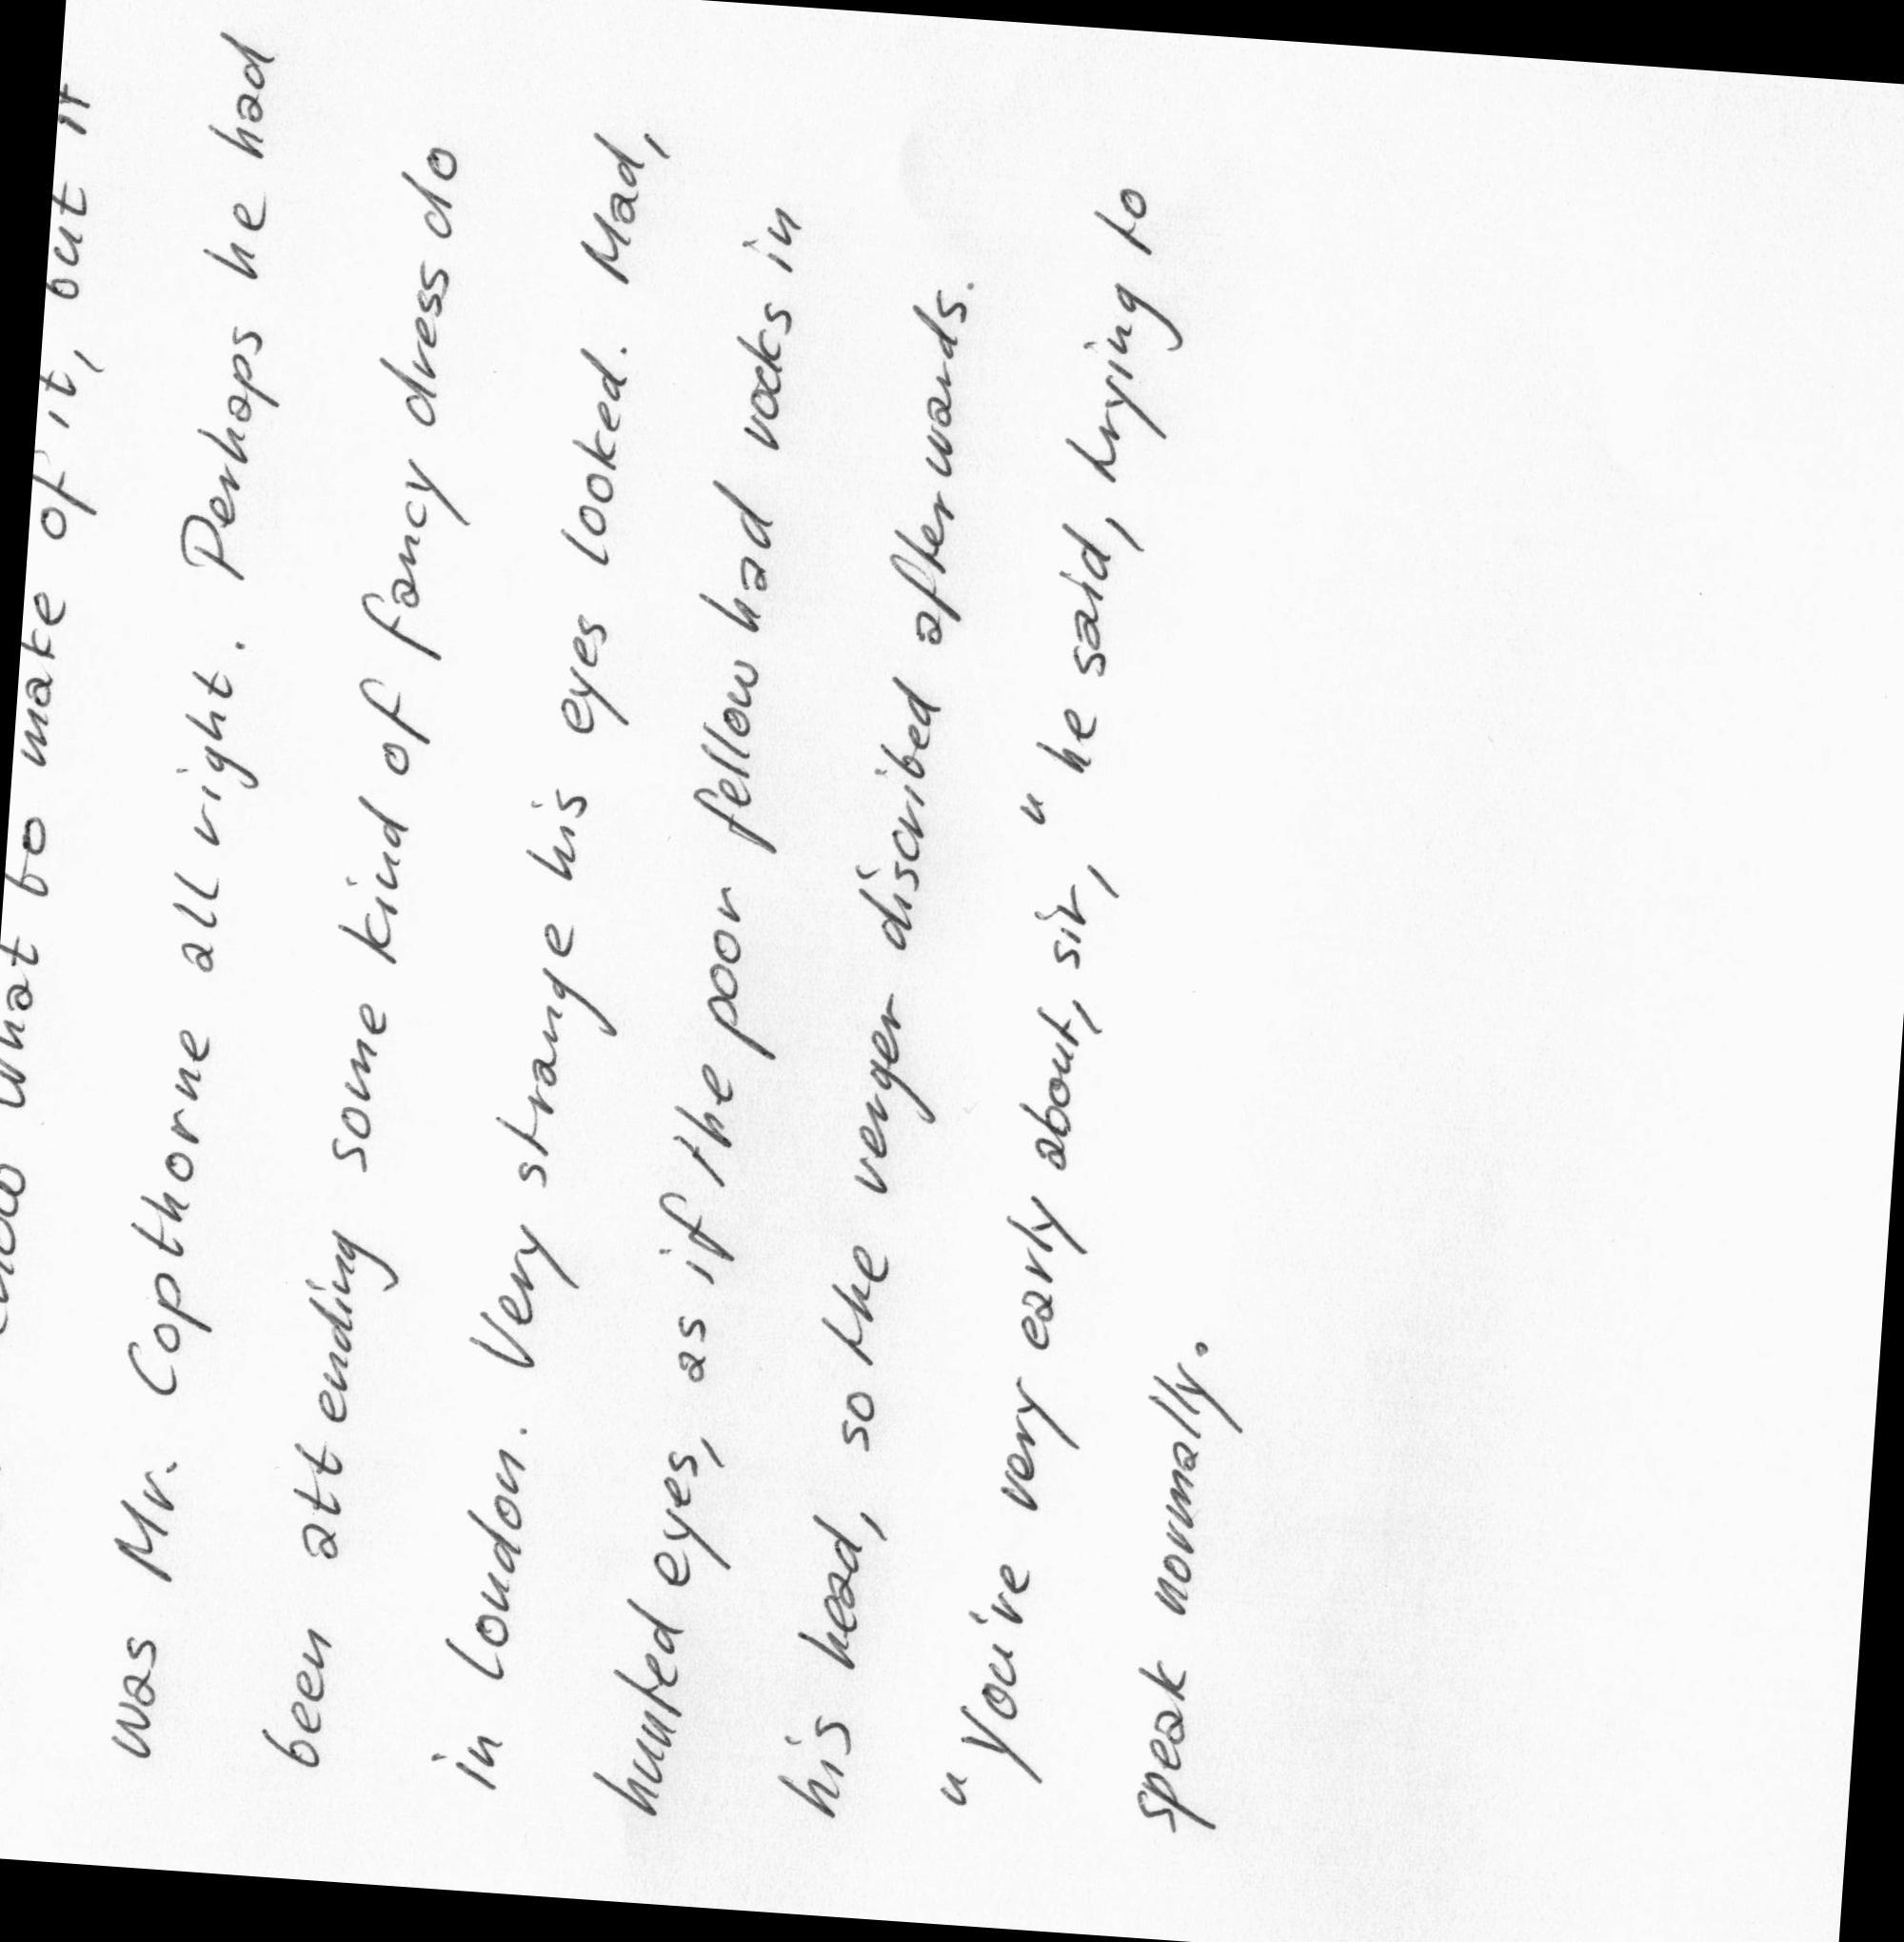 what to make of it, but it
was Mr. Copthorne all right. Perhaps he had
been attending some kind of fancy dress do
in London. Very strange his eyes looked. Mad,
hunted eyes, as if the poor fellow had rocks in
his head, so the verger discribed afterwards.
"You're very early about, sir," he said, trying to
speak normally.